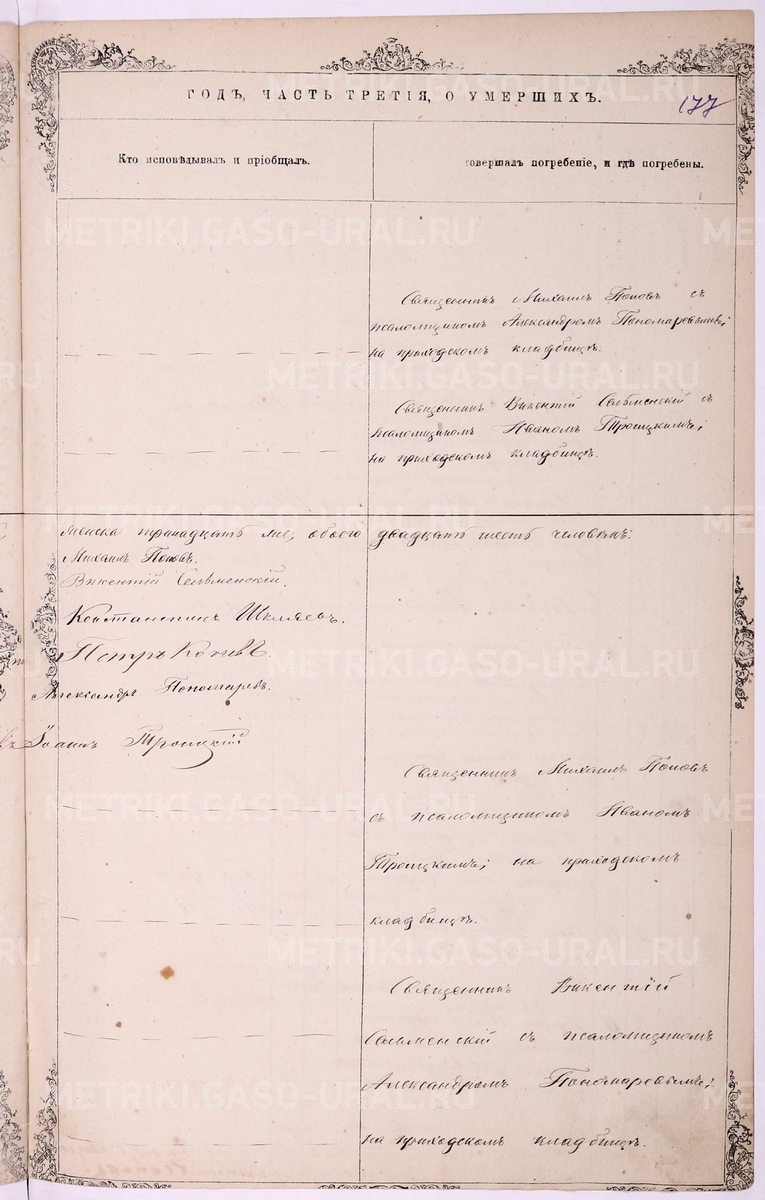 ГОДЪ, ЧАСТЬ ТРЕТІЯ, О УМЕРШИХЪ.
177
Кто исповѣдывалъ и пріобщалъ.
совершалъ погребеніе, и гдѣ погребены.
METRIKI.GASO-URAL.RU
Священникъ Михаилъ Поповъ съ
псаломщикомъ Александромъ Пономаревымъ;
на приходскомъ кладбищѣ.
Священникъ Викентій Сельменскій съ
псаломщикомъ Иваномъ Троицкимъ;
на приходскомъ кладбищѣ.
женска тринадцать обоего двадцать шесть человѣкъ.
Михаилъ Поповъ.
Викентій Сельменскій.
Константинъ Шкляевъ.
Петръ
Александръ Пономаревъ.
Іоаннъ Троицкій
Священникъ Михаилъ Поповъ
съ псаломщикомъ Иваномъ
Троицкимъ; на приходскомъ
кладбищѣ.
Священникъ Викентій
Сельменскій съ псаломщикомъ
Александромъ Пономаревымъ;
на приходскомъ кладбищѣ.